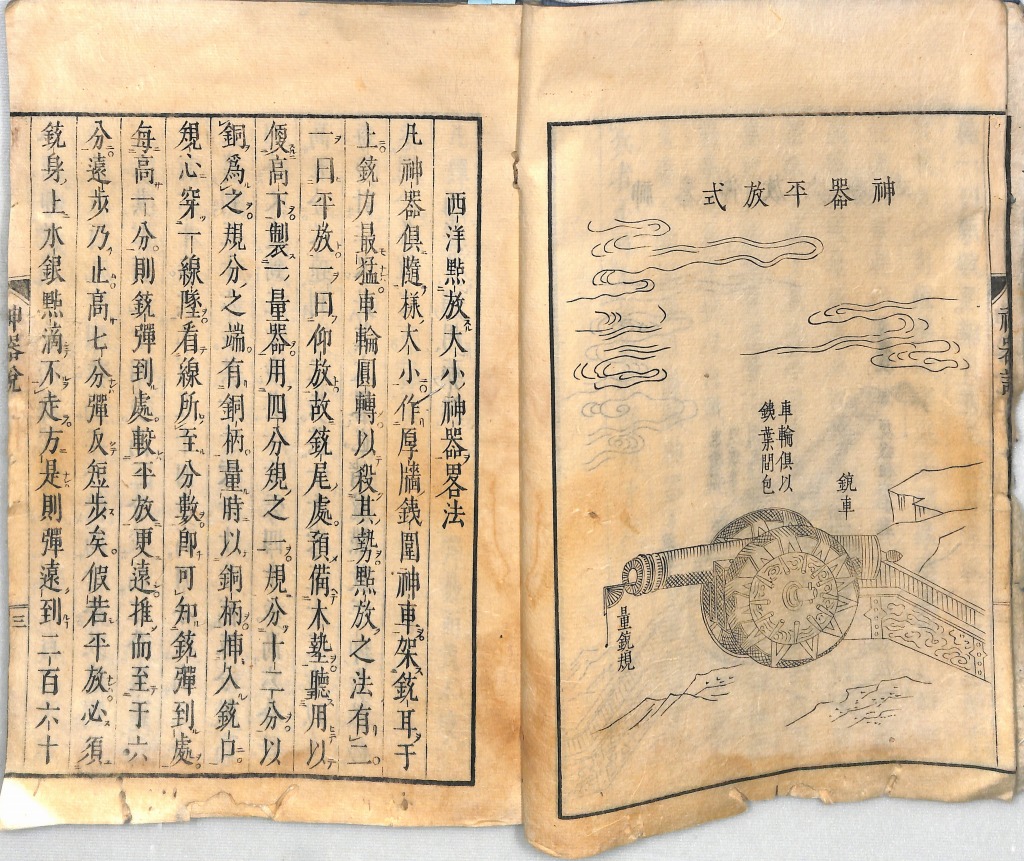 神器平放式
車輪俱以
銕葉間包
銃車
量銃規
西洋點放大小神器畧法
凡神器俱隨樣大小作厚牆銕圍神車架銃耳于
上銃力最猛車輪圓轉以殺其勢點放之法有二
一曰平放一曰仰放故銃尾處預備木墊聽用以
便高下製一量器用四分規之一規分十二分以
銅爲之規分之端有銅柄量時以銅柄揷入銃口
規心穿一線墜看線所至分數即可知銃彈到處
每高一分則銃彈到處較平放更遠推而至于六
分遠步乃止高七分彈反短步矣假若平放必須
銃身上水銀點滴不走方是則彈遠到二百六十
神器說
三